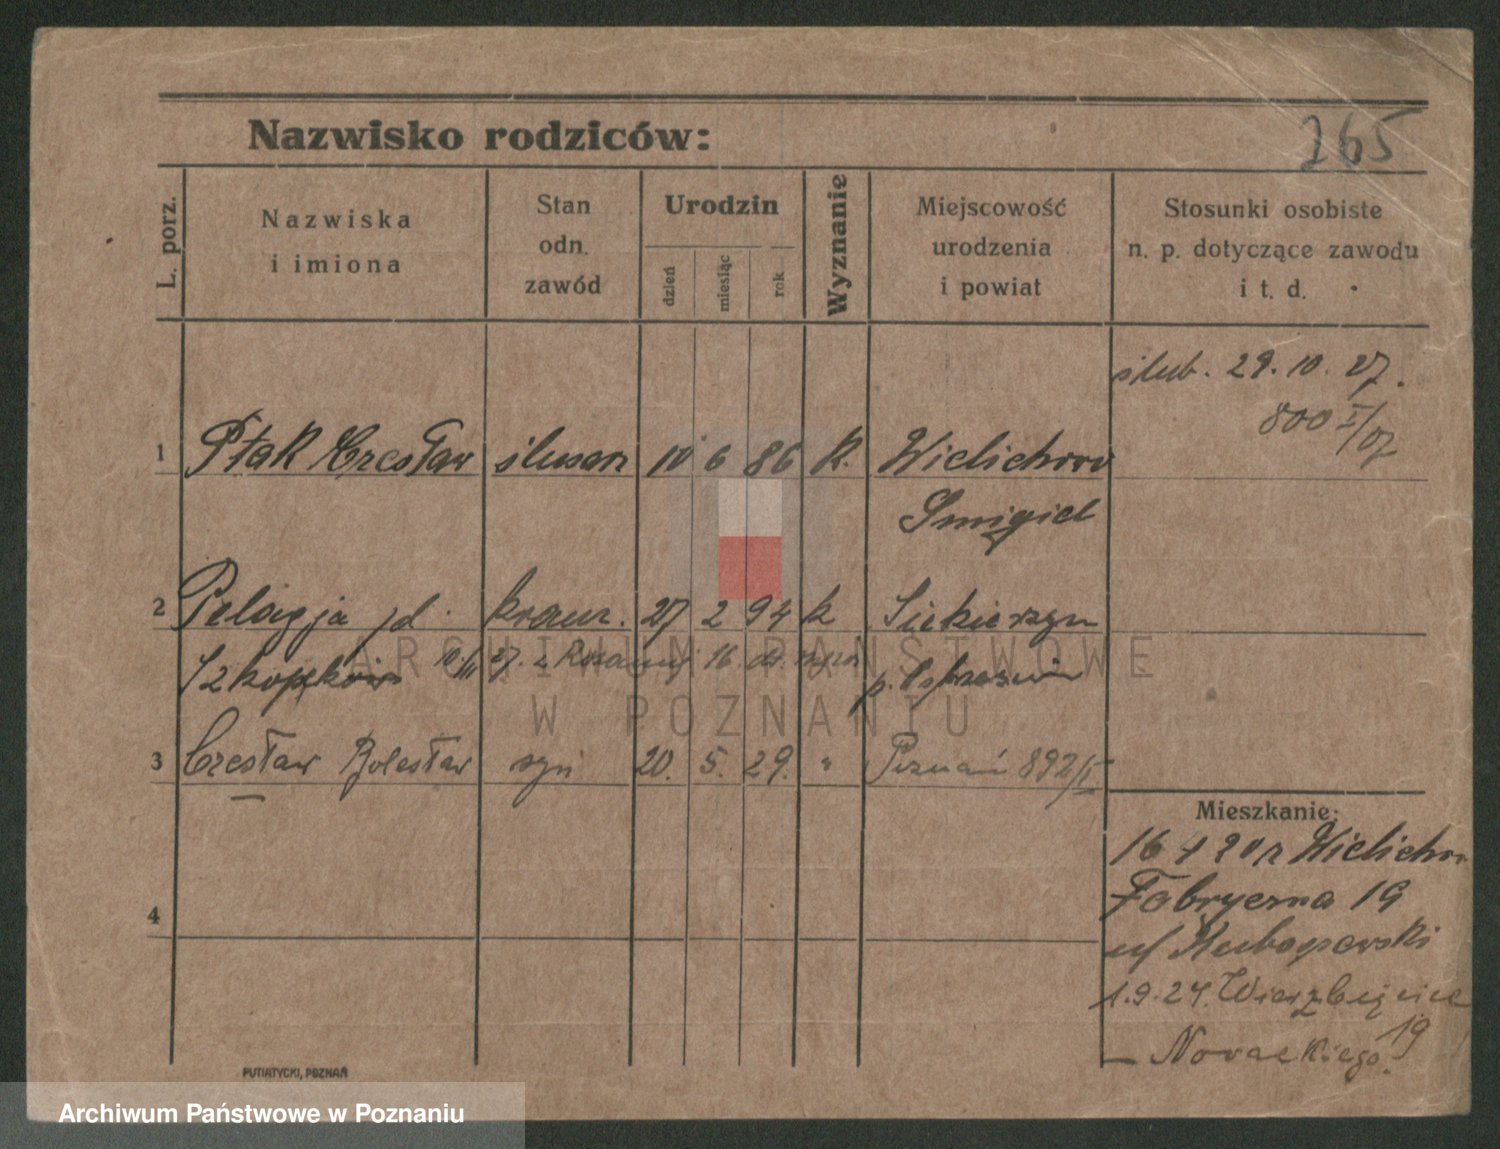 Nazwisko rodziców:
265
L. porz.
Nazwiska
i imiona
Stan
odn.
zawód
Urodzin
dzień
miesiąc
rok
Wyznanie
Miejscowość
urodzenia
i powiat
Stosunki osobiste
n. p. dotyczące zawodu
i t. d.
ślub. 29. 10. 27.
800 I/07
1 Ptak Czesław ślusarz 10 6 86 k. Wielichowo
Śmigiel
2 Pelagja 27 2 94 k Siekierzyn
10/III 27. z 16.
3 Czesław Bolesław syn 20. 5. 29. " Poznań 892/II
Mieszkanie:
16 Wielichowo
Fabryczna 19
1.9.24. Wierzbięcice
19
— Nowackiego.
4
PUTIATYCKI, POZNAŃ
ARCHIWUM PAŃSTWOWE
W POZNANIU
Archiwum Państwowe w Poznaniu